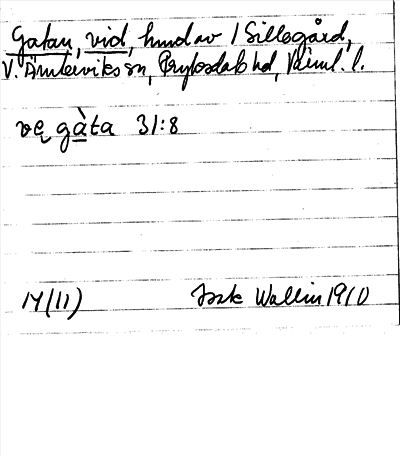 Gatan, vid, hmd av 1 Sillegård,
V. Ämterviks sn, Fryksdals hd, Värml. l.
vę gàta 31:8
14/11)
Isak Wallin 1910